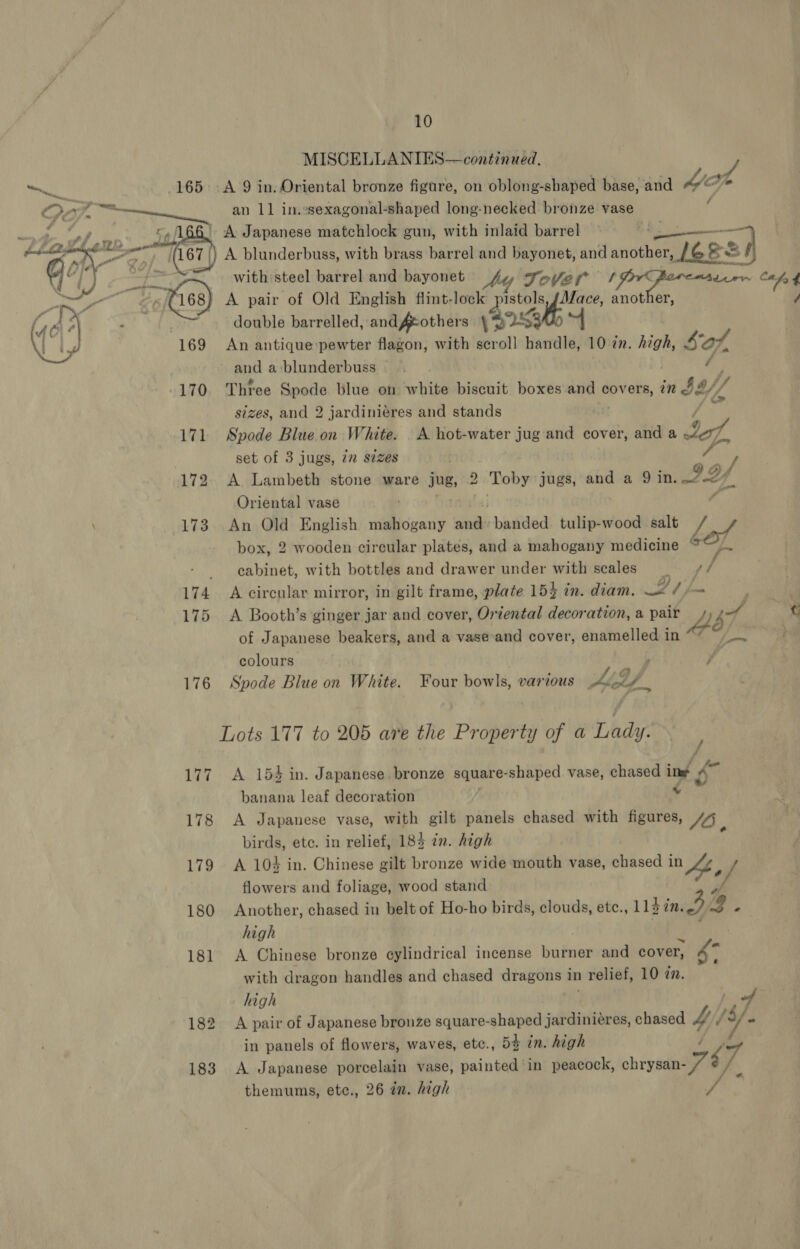 10
MISCELLANIES—continued.
165 A 9 in. Oriental bronze figure, on oblong-shaped base, and
an 11 in. sexagonal-shaped long-necked bronze vase
166 A Japanese matchlock gun, with inlaid barrel
167 A blunderbuss, with brass barrel and bayonet, and another,
with steel barrel and bayonet by Tover
168 A pair of Old English flint-lock pistols, Mace, another,
double barrelled, and others
169 An antique pewter flagon, with scroll handle, 10 in. high,
and a blunderbuss
170 Three Spode blue on white biscuit boxes and covers, in
sizes, and 2 jardinières and stands
171 Spode Blue on White. A hot-water jug and cover, and a
set of 3 jugs, in sizes
172 A Lambeth stone ware jug, 2 Toby jugs, and a 9 in.
Oriental vase
173 An Old English mahogany and banded tulip-wood salt
box, 2 wooden circular plates, and a mahogany medicine
cabinet, with bottles and drawer under with scales
174 A circular mirror, in gilt frame, plate 15½ in. diam.
175 A Booth's ginger jar and cover, Oriental decoration, a pair
of Japanese beakers, and a vase and cover, enamelled in
colours
176 Spode Blue on White. Four bowls, various
Lots 177 to 205 are the Property of a Lady.
177 A 15½ in. Japanese bronze square-shaped vase, chased in
banana leaf decoration
178 A Japanese vase, with gilt panels chased with figures,
birds, etc. in relief, 18½ in. high
179 A 10½ in. Chinese gilt bronze wide mouth vase, chased in
flowers and foliage, wood stand
180 Another, chased in belt of Ho-ho birds, clouds, etc., 11½ in.
high
181 A Chinese bronze cylindrical incense burner and cover,
with dragon handles and chased dragons in relief, 10 in.
high
182 A pair of Japanese bronze square-shaped jardinières, chased
in panels of flowers, waves, etc., 5½ in. high
183 A Japanese porcelain vase, painted in peacock, chrysan-
themums, etc., 26 in. high